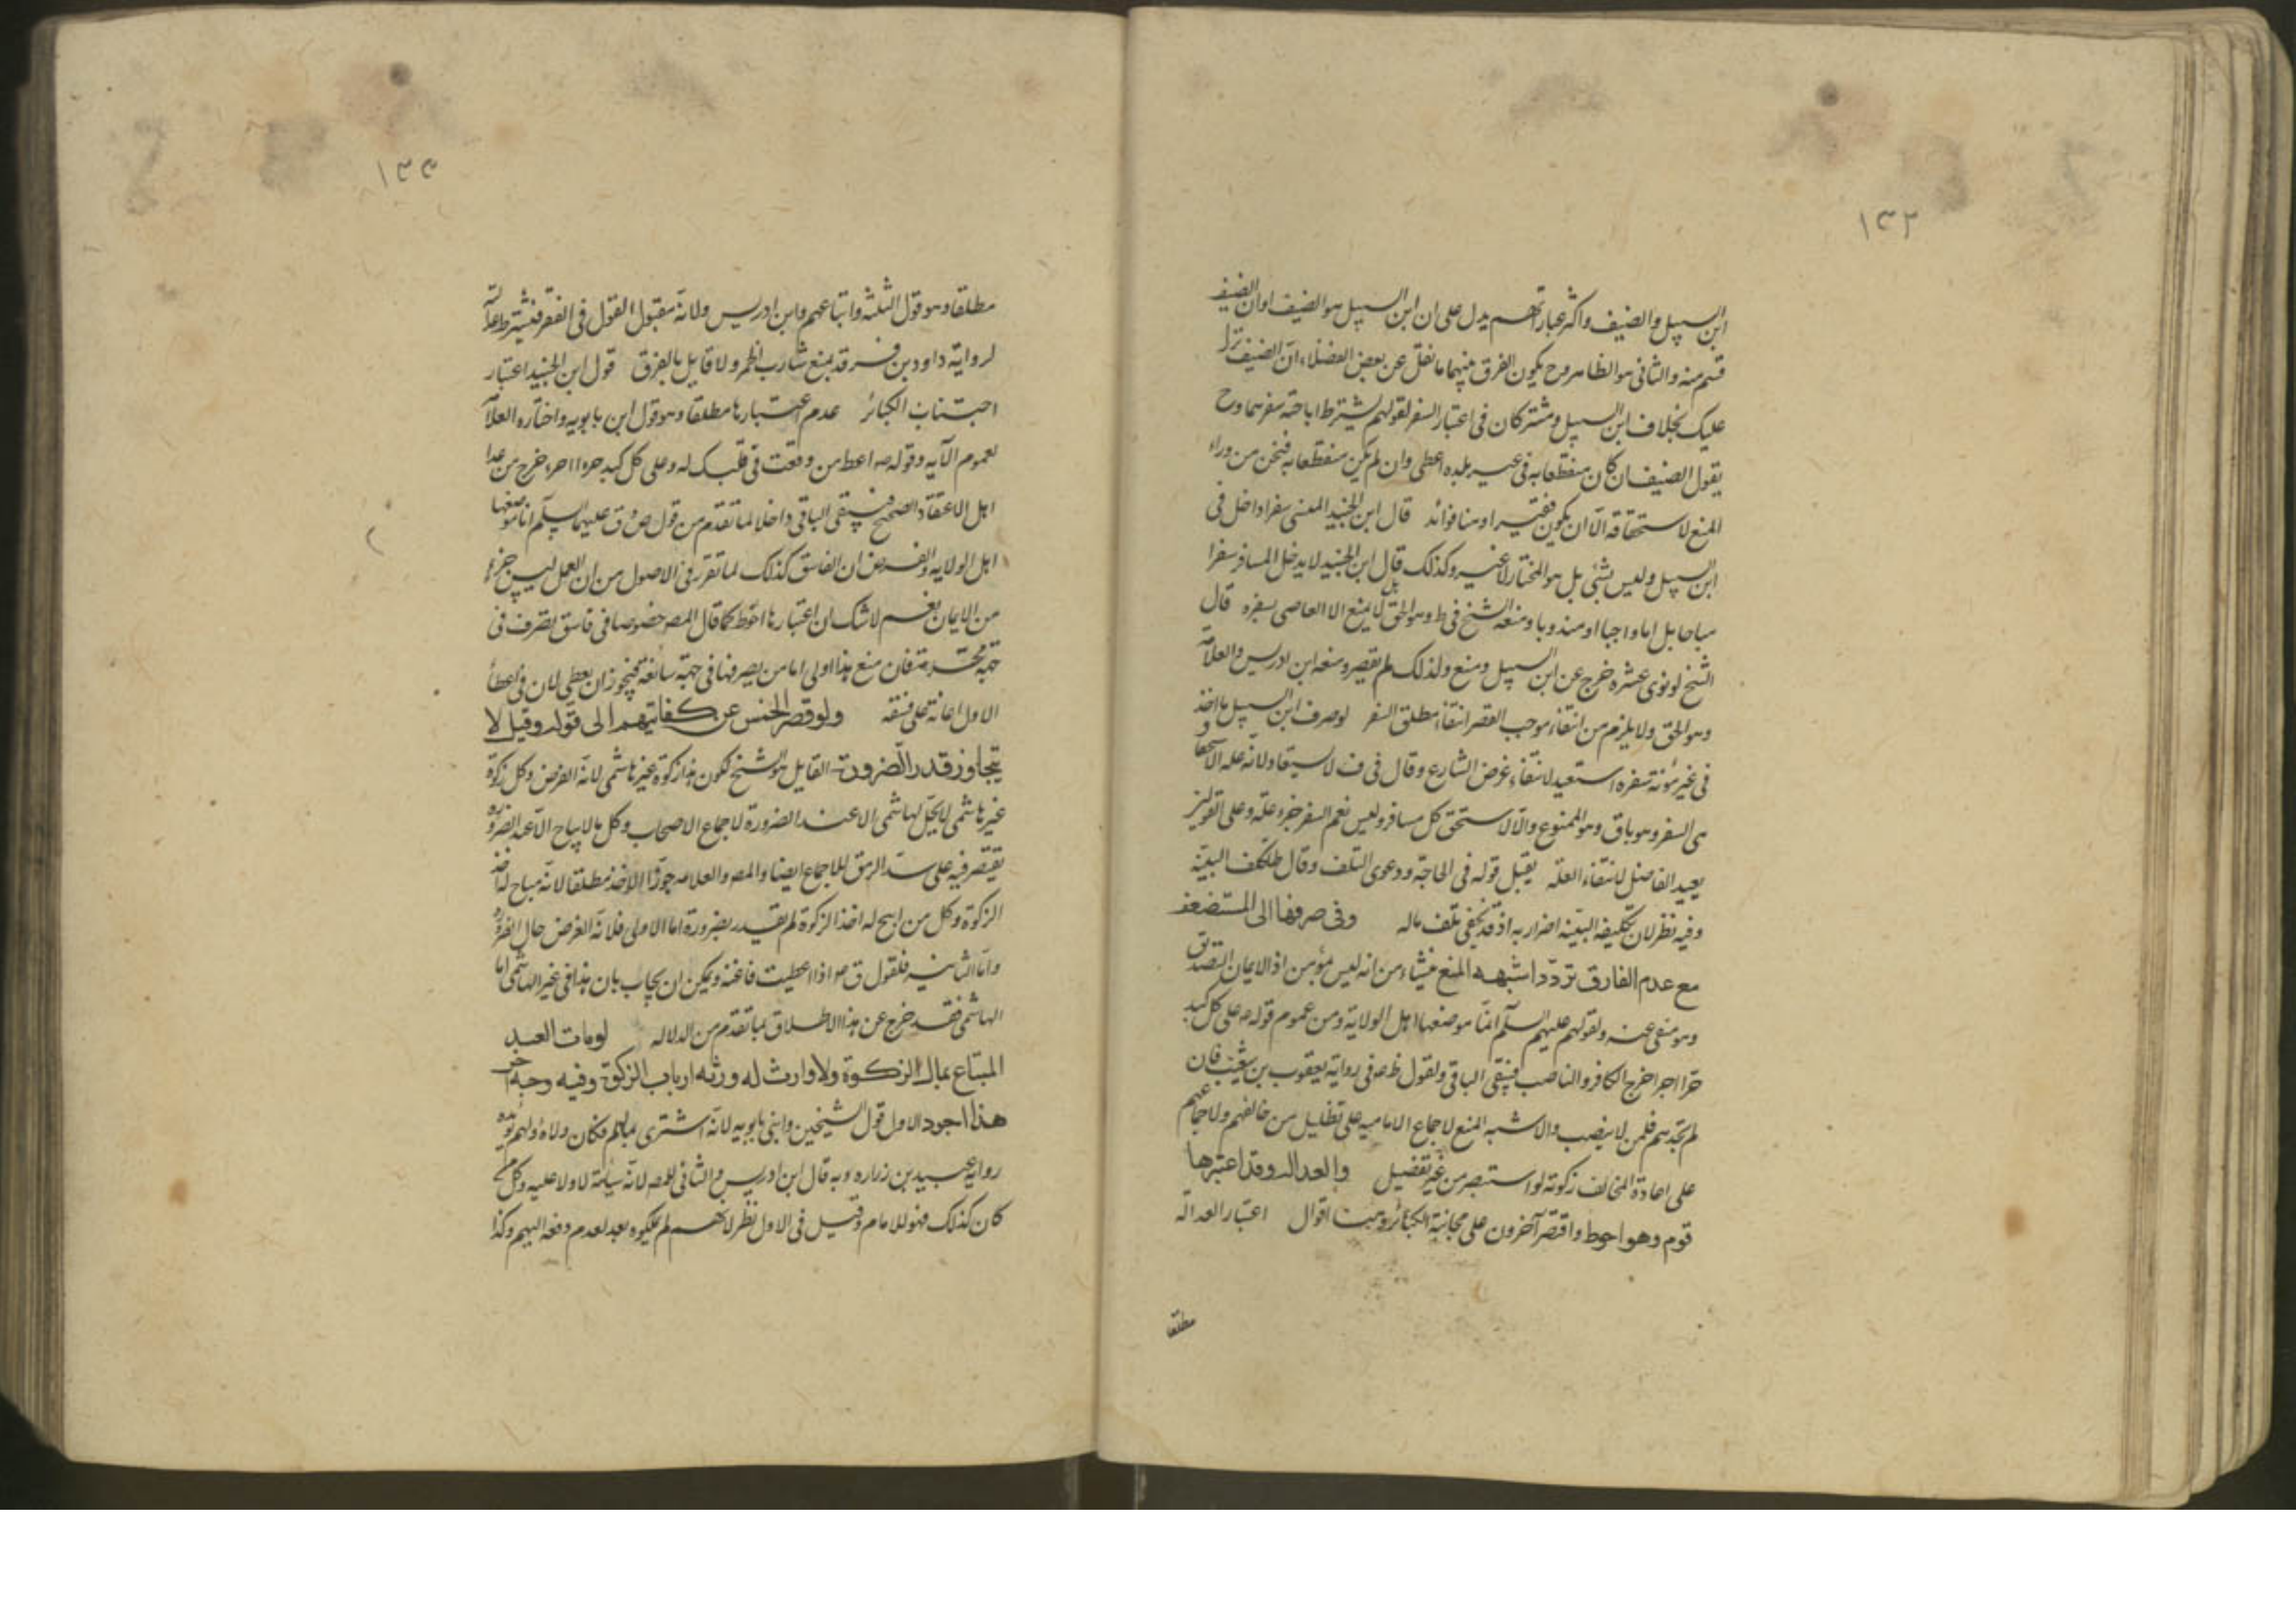 ١٣٢
ابن السبيل والضيف واكثر عباراتهم يدل على ان ابن السبيل هو الضيف او ان الضيف
قسم منه والثانى هو الظاهر وح يكون الفرق بينهما ما نقل عن بعض الفضلاء ان الضيف نزل
عليك بخلاف ابن السبيل ومشتركان فى اعتبار السفر لقولهم يشترط اباحة سفرهما وح
يقول الضيف ان كان منقطعا به فى غير بلده اعطى وان لم يكن منقطعا به فنحن من وراء
المنع لاستحقاقه الا ان يكون فقيرا وهنا فوائد قال ابن الجنيد المنشى سفرا داخل فى
ابن السبيل وليس بشئ بل هو المختار لاغير وكذلك قال ابن الجنيد لا يدخل المسافر سفرا
مباحا بل اما واجبا او مندوبا ومنعه الشيخ فى ط وهو الحق بل لا يمنع الا العاصى بسفره قال
الشيخ لو نوى عشره خرج عن ابن السبيل ومنع ولذلك لم يقصر ومنعه ابن ادريس والعلامة
وهو الحق ولا يلزم من انتفاء موجب القصر انتفاء مطلق السفر لو صرف ابن السبيل ما اخذ
فى غير مؤنة سفره استعيد لانتفاء غرض الشارع وقال فى ف لا يستعاد لانه عله الاستحقاق
هى السفر وهو باق وهو الممنوع والا لاستحق كل مسافر وليس نعم السفر جزء علته وعلى القولين
يعيد الفاضل لانتفاء العله يقبل قوله فى الحاجة ودعوى التلف وقال ط يكلف البينة
وفيه نظر لان تكليفه البينه اضرار به اذ قد يخفى تلف ماله وفى صرفها الى المستضعف
مع عدم العارف تردد اشبهه المنع منشاء من انه ليس مؤمن اذ الايمان التصديق
وهو منفى عنه ولقولهم عليهم السلام انما موضعها اهل الولاية ومن عموم قوله ص على كل كبد
حرا اجر اخرج الكافر والناصب فيبقى الباقى ولقول ظ ع فى رواية يعقوب بن شعيب فان
لم تجدهم فلمن لا ينصب والاشبه المنع لاجماع الاماميه على تظليل من خالفهم ولاجماعهم
على اعادة المخالف زكوته لو استبصر من غير تفضيل والعداله وقد اعتبرها
قوم وهو احوط واقتصر آخرون على مجانبة الكبائر وهيهنا اقوال اعتبار العدالة
مطلقا
١٣٣
مطلقا وهو قول الثلثه واتباعهم وابن ادريس ولانه مقبول القول فى الفقر فيشترط عدالته
لرواية داود بن فرقد بمنع شارب الخمر ولا قايل بالفرق قول ابن الجنيد اعتبار
اجتناب الكبائر عدم اعتبارها مطلقا وهو قول ابن بابويه واختاره العلامة
لعموم الآيه وقوله ص اعط من وقعت فى قلبك له وعلى كل كبد حره اجر، خرج من عدا
اهل الاعتقاد الصحيح فيبقى الباقى داخلا لما تقدم من قول ص وق عليهما السلام انما موضعها
اهل الولايه والفرض ان الفاسق كذلك لما تقرر فى الاصول من ان العمل ليس جزء
من الايمان نعم لا شك ان اعتبارها احوط كما قال المصر خصوصا فى فاسق تصرف فى
جهة محرمة فان منع هذا اولى اما من يصرفها فى جهة سائغة فيجوز ان يعطى لان فى اعطاء
الاول اعانة على فسقه ولو قصر الخمس عن كفايتهم الى قوله وقيل لا
يتجاوز قدر الضرورة القايل هو الشيخ لكون هذا زكوة غير هاشمى لانه الفرض وكل زكوة
غير هاشمى لا يحل لهاشمى الا عند الضرورة لاجماع الاصحاب وكل ما لا يباح الا عند الضرورة
يقتصر فيه على سد الرمق للاجماع ايضا والمصر والعلامه جوزا الاخذ مطلقا لانه مباح له اخذ
الزكوة وكل من ابيح له اخذ الزكوة لم يقيد بضرورة اما الاولى فلانه الفرض حال الضرورة
واما الثانيه فلقول ق ع اذا اعطيت فاغنه ويمكن ان يجاب بان هذا فى غير الهاشمى اما
الهاشمى فقد خرج عن هذا الاطلاق بما تقدم من الدلاله لو مات العبد
المبتاع بمال الزكوة ولا وارث له ورثه ارباب الزكوة وفيه وجه آخر
هذا اجود الاول قول الشيخين وابنى بابويه لانه اشترى بمالهم فكان ولاءه لهم يؤيده
رواية عبيد بن زراره وبه قال ابن ادريس والثانى للمصر لانه سايبة لا ولا عليه وكل من
كان كذلك فهو للامام وقيل فى الاول نظر لانهم لم يملكوه بعد لعدم دفعه اليهم وكذا